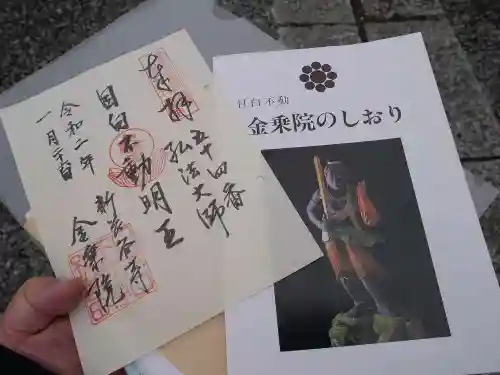 奉拝
五十四番
弘法大師
目白不動明王
新長谷寺
金乗院
令和二年
目白不動
金乗院のしおり